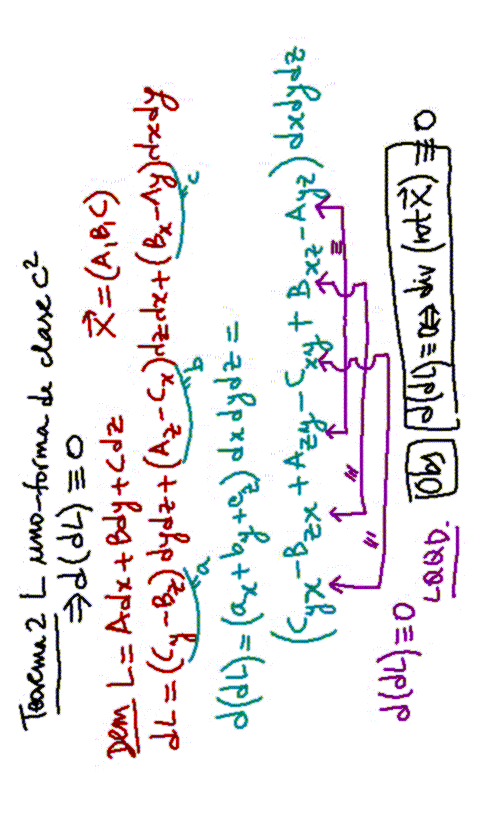 Teorema 2 L uno-forma de clase C²
⇒ d(dL) ≡ 0
Dem L = Adx + Bdy + Cdz X⃗ = (A, B, C)
dL = (C_y - B_z) dydz + (A_z - C_x) dzdx + (B_x - A_y) dxdy
a b c
d(dL) = (a_x + b_y + c_z) dxdydz =
(C_yx - B_zx + A_zy - C_xy + B_xz - A_yz) dxdydz
= = =
d(dL) ≡ 0 LQQD.
Obs d(dL) ≡ 0 ⇔ div (rot X⃗) ≡ 0